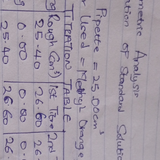 metric Analysis
ation of Standard Solut
Pipette = 25.00cm³
r Used = Methyl Orange
TITRATION TABLE
Rough (cm³) 1st Titre 2nd
25.40 26.60 26.
0.00 0.00 0.0
25.40 26.60 26.